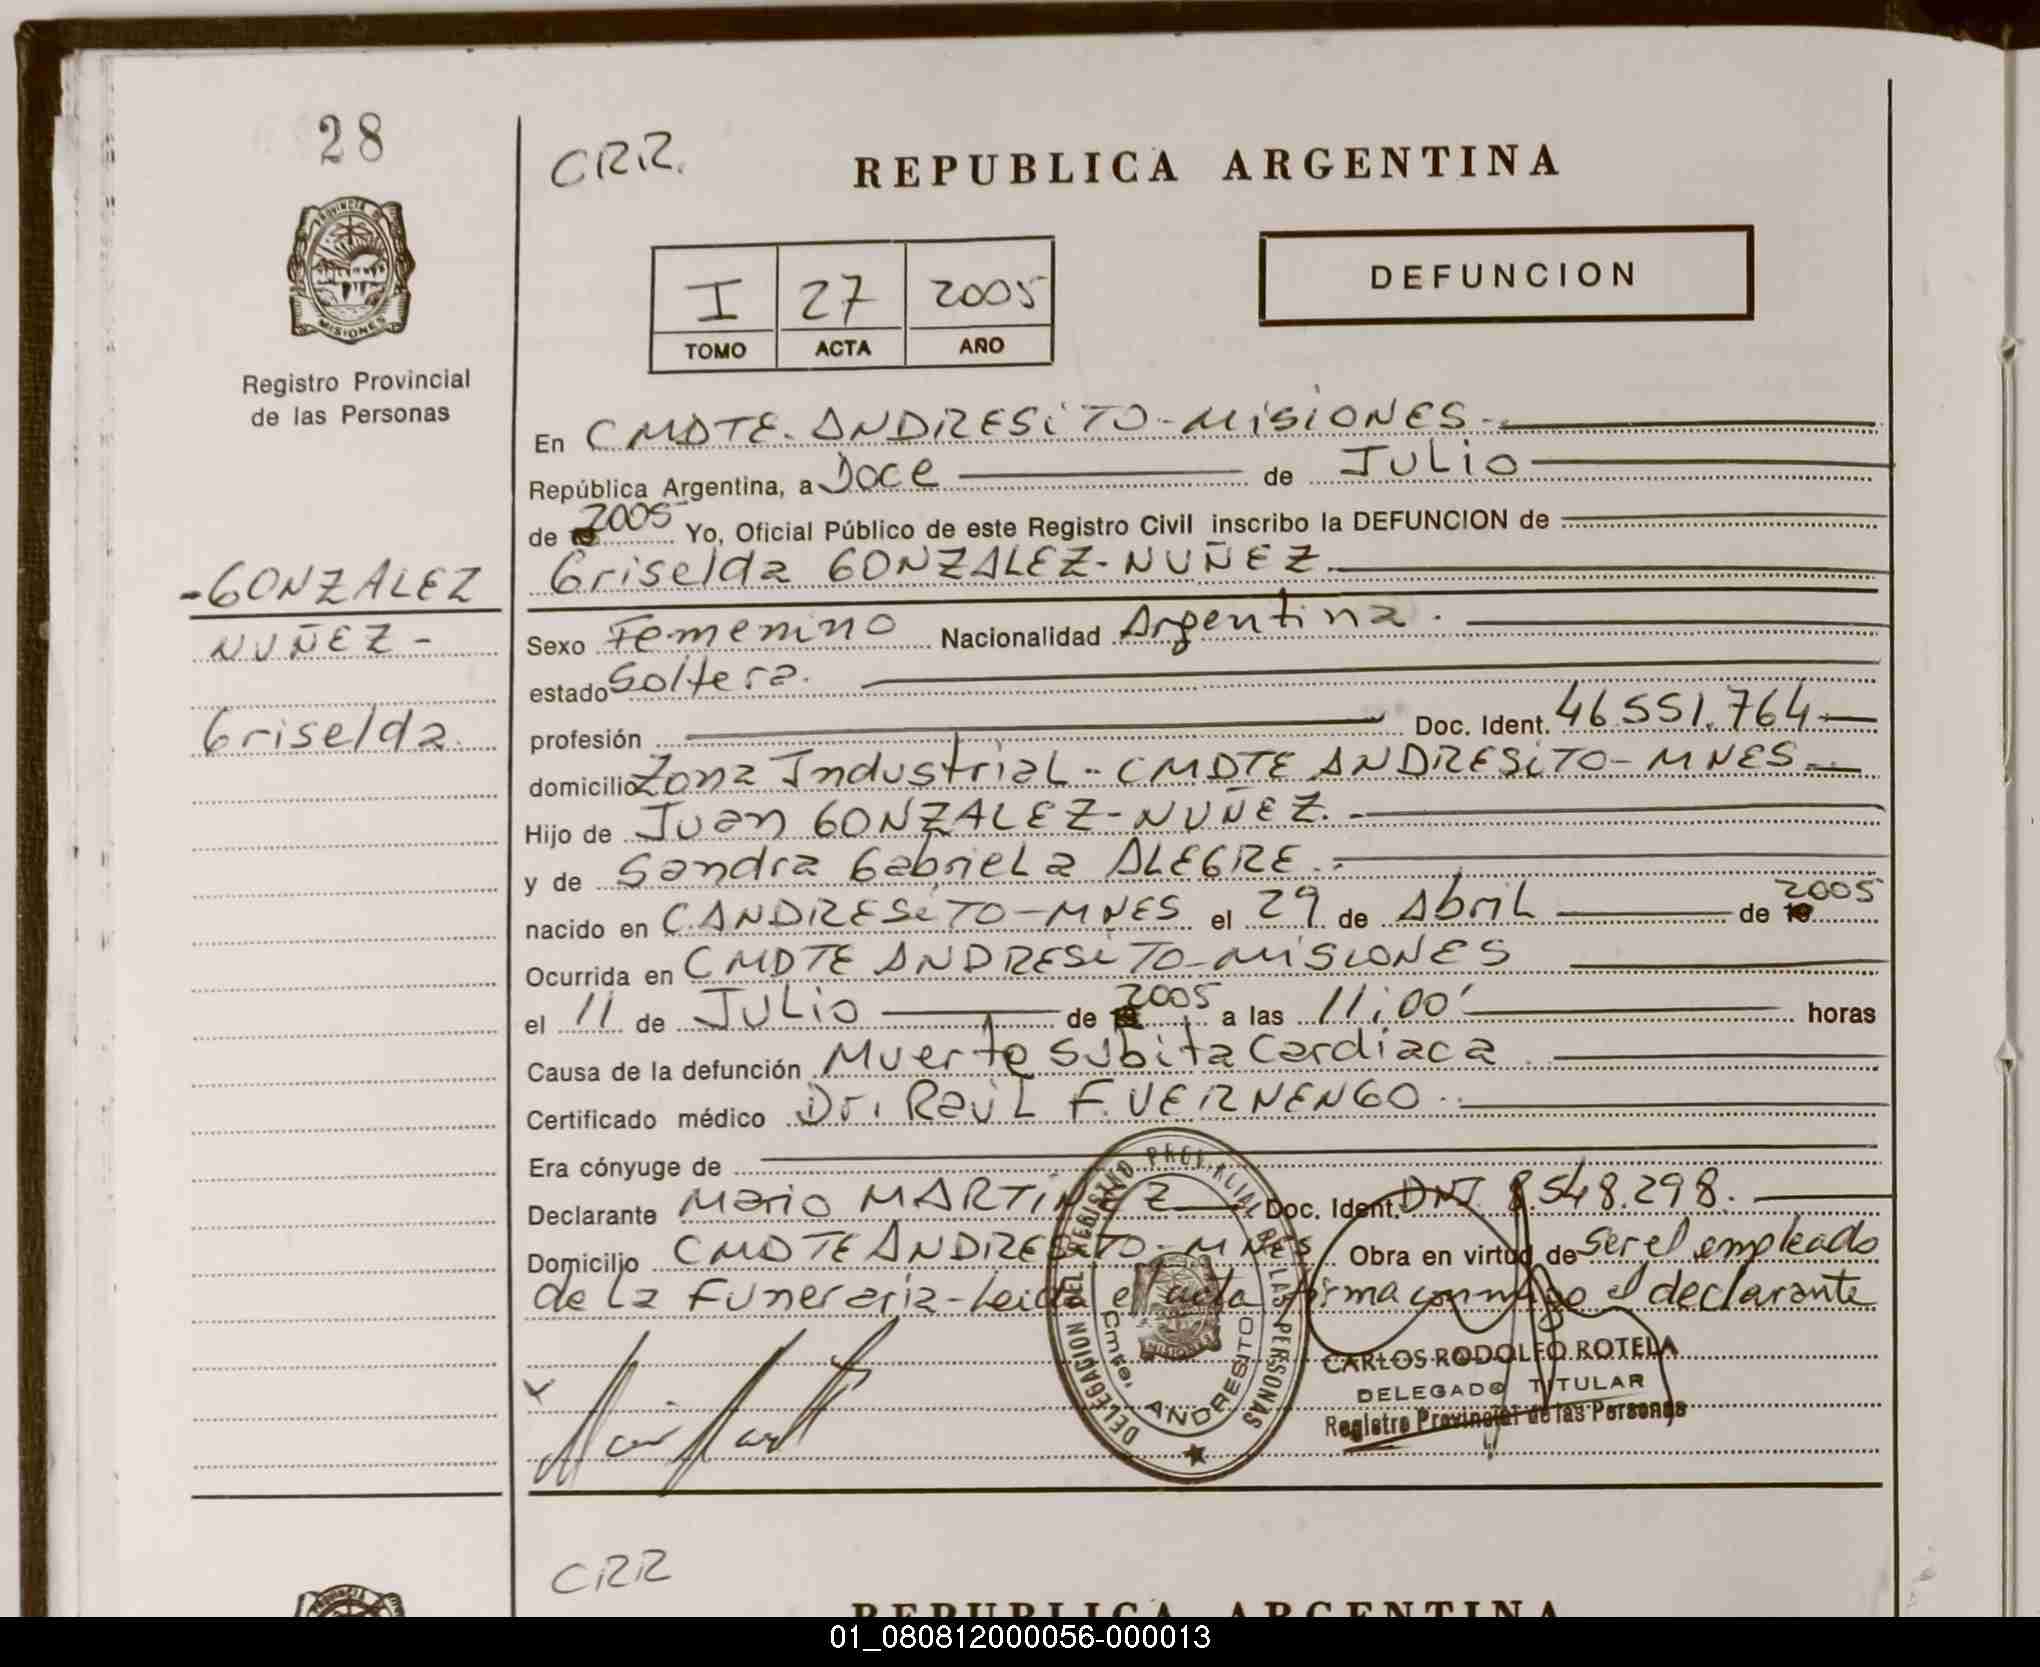 28
CRR.
REPUBLICA ARGENTINA
PROVINCIA DE
MISIONES
I 27 2005
TOMO ACTA AÑO
DEFUNCION
Registro Provincial
de las Personas
En CMDTE. ANDRESiTO-MiSiONES.-
República Argentina, a Doce de JULio
de 2005 Yo, Oficial Público de este Registro Civil inscribo la DEFUNCION de
Griselda GONZALEZ-NUÑEZ.
-GONZALEZ
NUÑEZ-
Griselda.
Sexo Femenino Nacionalidad Argentina.
estado Soltera.
profesión Doc. Ident. 46.551.764
domicilio Zona Industrial-CMDTE ANDRESiTO-MNES.
Hijo de Juan GONZALEZ-NUÑEZ.-
y de Sandra Gabriela ALEGRE.-
nacido en C.ANDRESiTO-MNES el 29 de Abril de 2005
Ocurrida en CMDTE ANDRESiTO-MiSiONES
el 11 de JULio de 2005 a las 11:00' horas
Causa de la defunción Muerte Subita Cardiaca.
Certificado médico Dr. Raul F. VERNENGO.
Era cónyuge de
Declarante Mario MARTINEZ Doc. Ident. DNI. 8.548.298.
Domicilio CMDTE ANDRESiTO-MNES Obra en virtud de Ser el empleado
de la Funeraria-Leida el acta firma conmigo el declarante
DELEGACION DEL REGISTRO PROVINCIAL DE LAS PERSONAS
Cmte. ANDRESITO
MISIONES
CARLOS RODOLFO ROTELA
DELEGADO TITULAR
Registro Provincial de las Personas
CRR
REPUBLICA ARGENTINA
01_080812000056-000013